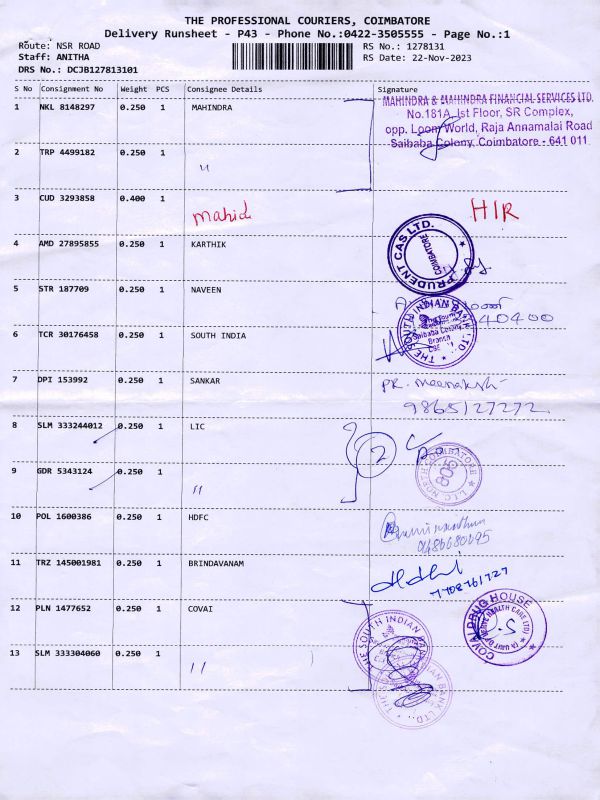 THE PROFESSIONAL COURIERS, COIMBATORE
Delivery Runsheet - P43 - Phone No.:0422-3505555 - Page No.:1
Route: NSR ROAD RS No.: 1278131
Staff: ANITHA RS Date: 22-Nov-2023
DRS No.: DCJB127813101
S No Consignment No Weight PCS Consignee Details Signature
1 NKL 8148297 0.250 1 MAHINDRA
MAHINDRA & MAHINDRA FINANCIAL SERVICES LTD.
No.181A, Ist Floor, SR Complex,
opp. Loom World, Raja Annamalai Road
Saibaba Colony, Coimbatore - 641 011
2 TRP 4499182 0.250 1 "
3 CUD 3293858 0.400 1 Mahid H/R
4 AMD 27895855 0.250 1 KARTHIK
PRUDENT CAS LTD.
COIMBATORE
5 STR 187709 0.250 1 NAVEEN
40400
6 TCR 30176458 0.250 1 SOUTH INDIA
THE SOUTH INDIAN BANK LTD.
Saibaba Colony
Branch
7 DPI 153992 0.250 1 SANKAR
PR. Meenakshi
9865127272
8 SLM 333244012 0.250 1 LIC 2
9 GDR 5343124 0.250 1 "
L.I.C. NORTH COIMBATORE
10 POL 1600386 0.250 1 HDFC
11 TRZ 145001981 0.250 1 BRINDAVANAM
7708761727
12 PLN 1477652 0.250 1 COVAI
COVAI DRUG HOUSE
THE SOUTH INDIAN BANK
13 SLM 333304060 0.250 1 "
THE SOUTH INDIAN BANK LTD.